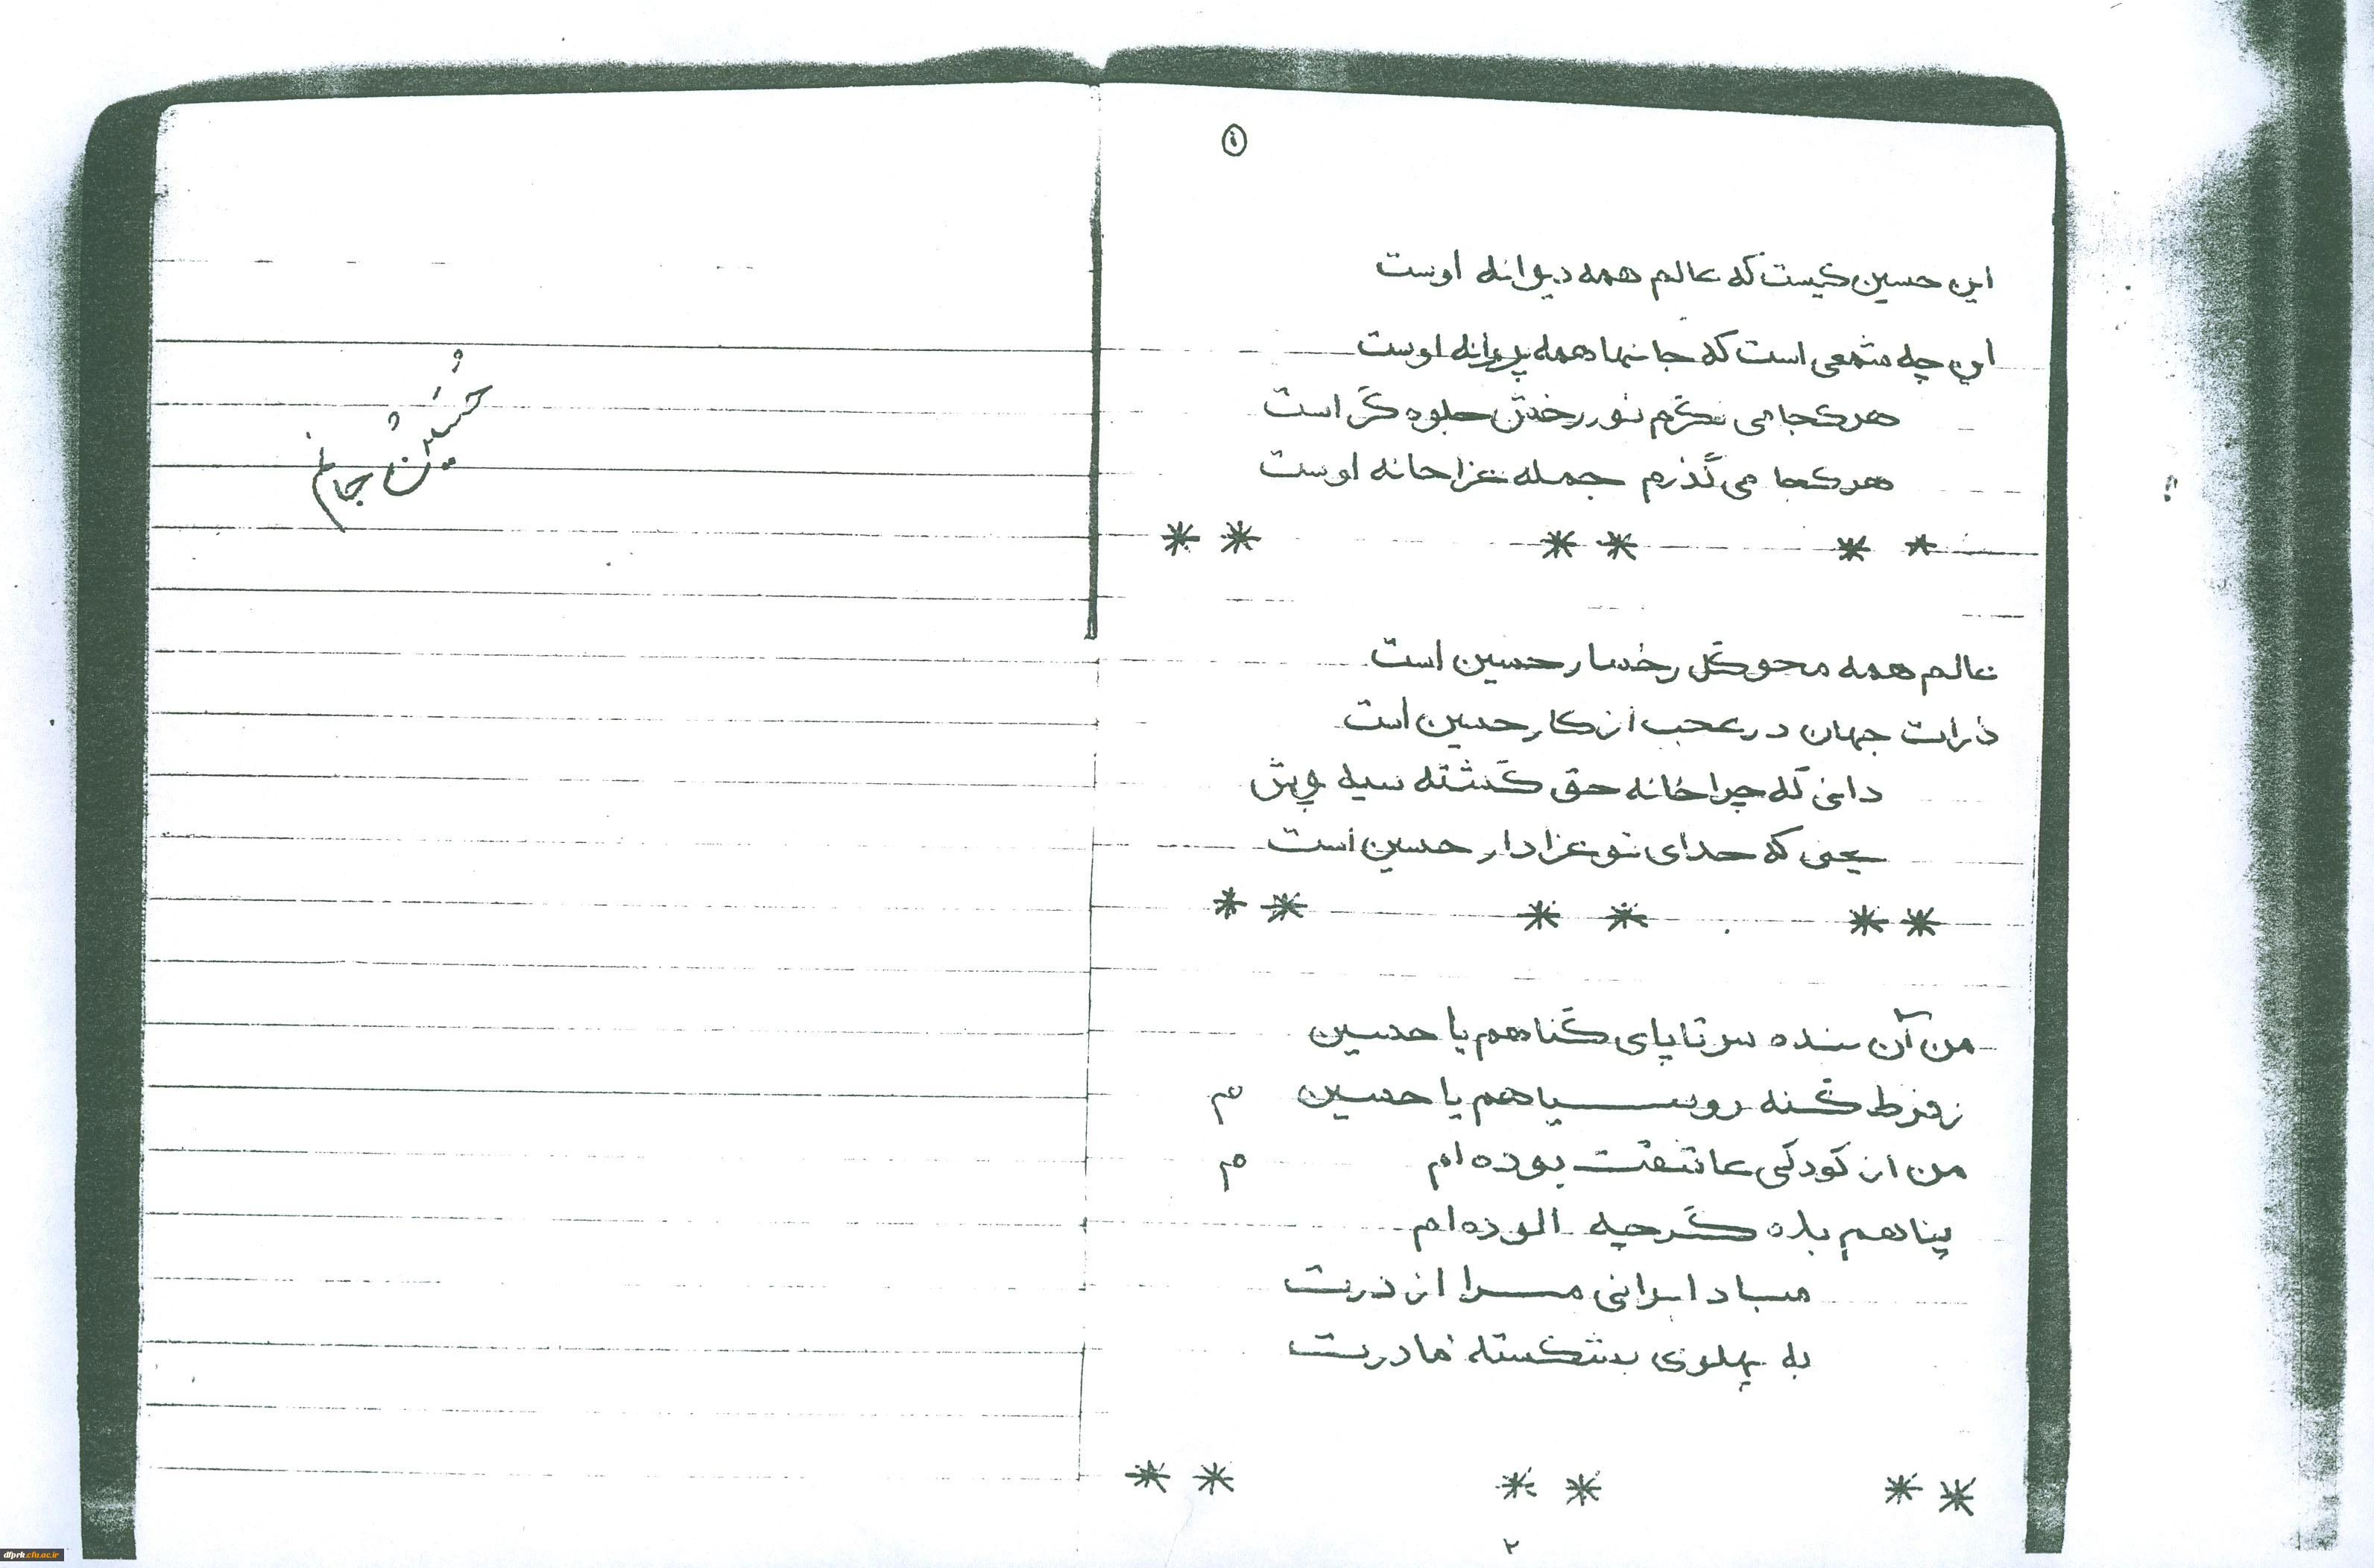 ۱
این حسین کیست که عالم همه دیوانه اوست
این چه شمعی است که جانها همه پروانه اوست
هر کجا می نگرم نور رخش جلوه گر است
هر کجا می گذرم جمله عزاخانه اوست
** ** **
عالم همه محو گل رخسار حسین است
ذرات جهان در عجب از کار حسین است
دانی که چرا خانه حق گشته سیه پوش
یعنی که خدای تو عزادار حسین است
** ** **
من آن بنده سر تا پای گناهم یا حسین
زفرط گنه رو سیاهم یا حسین م
من از کودکی عاشقت بوده ام م
پناهم بده گرچه الوده ام
مباد ا برانی مرا از درت
به پهلوی بشکسته مادرت
** ** **
۲
حسین جانم
dfprk.cfu.ac.ir